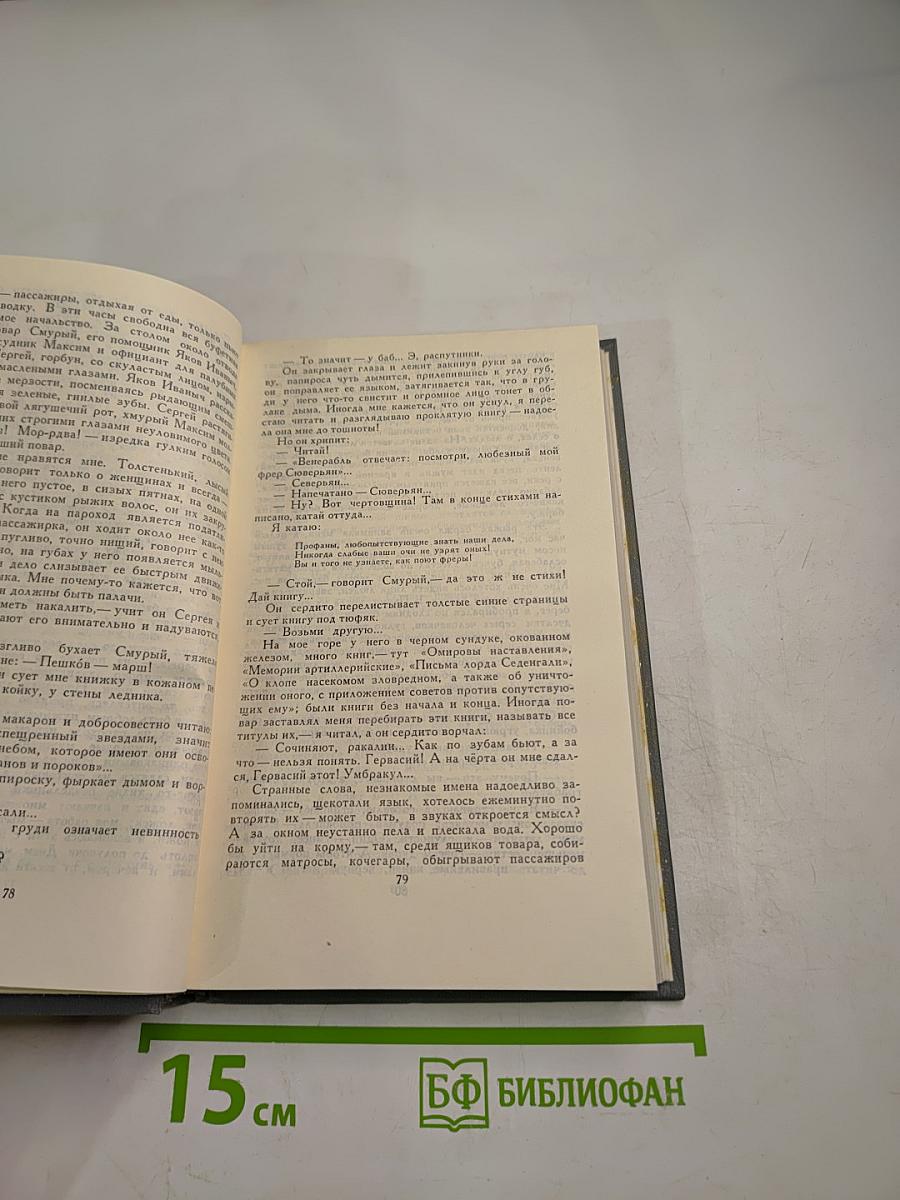 — пассажиры, отдыхая от еды, только
водку. В эти часы свободна вся буфетная
мое начальство. За столом около
Смурый, его помощник Яков Иваныч
Максим и официант для палубных
Сергей, горбун, со скуластым лицом,
маслеными глазами. Яков Иваныч
мерзости, посмеиваясь рыдающим
зеленые, гнилые зубы. Сергей
лягушечий рот, хмурый Максим
них строгими глазами неуловимого цвета
! Мор-рдва! — изредка гулким голосом
повар.
не нравятся мне. Толстенький, лысый
говорит только о женщинах и всегда
него пустое, в сизых пятнах, на одной
с кустиком рыжих волос, он их
Когда на пароход является
пассажирка, он ходит около нее как-то
пугливо, точно нищий, говорит с ней
но, на губах у него появляется
и дело слизывает ее быстрым
Мне почему-то кажется, что вот
должны быть палачи.
накалить,— учит он Сергея
его внимательно и надуваются
бухает Смурый,
— Пешко́в — марш!
сует мне книжку в кожаном
койку, у стены ледника.
макарон и добросовестно читаю:
звездами, значит
небом, которое имеют они
и пороков»...
папироску, фыркает дымом и вор-
груди означает невинность
?
78
— То значит — у баб... Э, распутники.
Он закрывает глаза и лежит закинув руки за голо-
ву, папироса чуть дымится, прилепившись к углу губ,
он поправляет ее языком, затягивается так, что в гру-
ди у него что-то свистит и огромное лицо тонет в об-
лаке дыма. Иногда мне кажется, что он уснул, я пере-
стаю читать и разглядываю проклятую книгу — надое-
ла она мне до тошноты!
Но он хрипит:
— Читай!
— «Венерабль отвечает: посмотри, любезный мой
фрер Сюверьян»...
— Северьян...
— Напечатано — Сюверьян...
— Ну? Вот чертовщина! Там в конце стихами на-
писано, катай оттуда...
Я катаю:
Профаны, любопытствующие знать наши дела,
Никогда слабые ваши очи не узрят оных!
Вы и того не узнаете, как поют фреры!
— Стой,— говорит Смурый,— да это ж не стихи!
Дай книгу...
Он сердито перелистывает толстые синие страницы
и сует книгу под тюфяк.
— Возьми другую...
На мое горе у него в черном сундуке, окованном
железом, много книг,— тут «Омировы наставления»,
«Мемории артиллерийские», «Письма лорда Седенгали»,
«О клопе насекомом зловредном, а также об уничто-
жении оного, с приложением советов против сопутствую-
щих ему»; были книги без начала и конца. Иногда по-
вар заставлял меня перебирать эти книги, называть все
титулы их,— я читал, а он сердито ворчал:
— Сочиняют, ракалии... Как по зубам бьют, а за
что — нельзя понять. Гервасий! А на чёрта он мне сдал-
ся, Гервасий этот! Умбракул...
Странные слова, незнакомые имена надоедливо за-
поминались, щекотали язык, хотелось ежеминутно по-
вторять их — может быть, в звуках откроется смысл?
А за окном неустанно пела и плескала вода. Хорошо
бы уйти на корму,— там, среди ящиков товара, соби-
раются матросы, кочегары, обыгрывают пассажиров
79
15 см
БФ БИБЛИОФАН